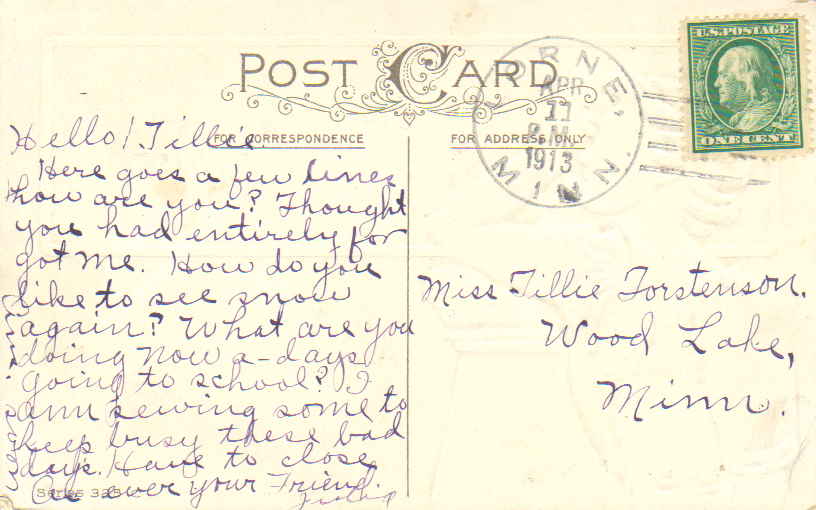 POST CARD
FOR CORRESPONDENCE
FOR ADDRESS ONLY
U.S. POSTAGE
ONE CENT
ORNE, MINN.
APR
11
P.M.
1913
Hello! Tillie.
Here goes a few lines
how are you? Thought
you had entirely for
got me. How do you
like to see snow
again? What are you
doing now a-days
going to school? I
am sewing some to
keep busy these bad
days. Have to close
As ever your Friend.
Miss Tillie Torstenson.
Wood Lake,
Minn.
Series